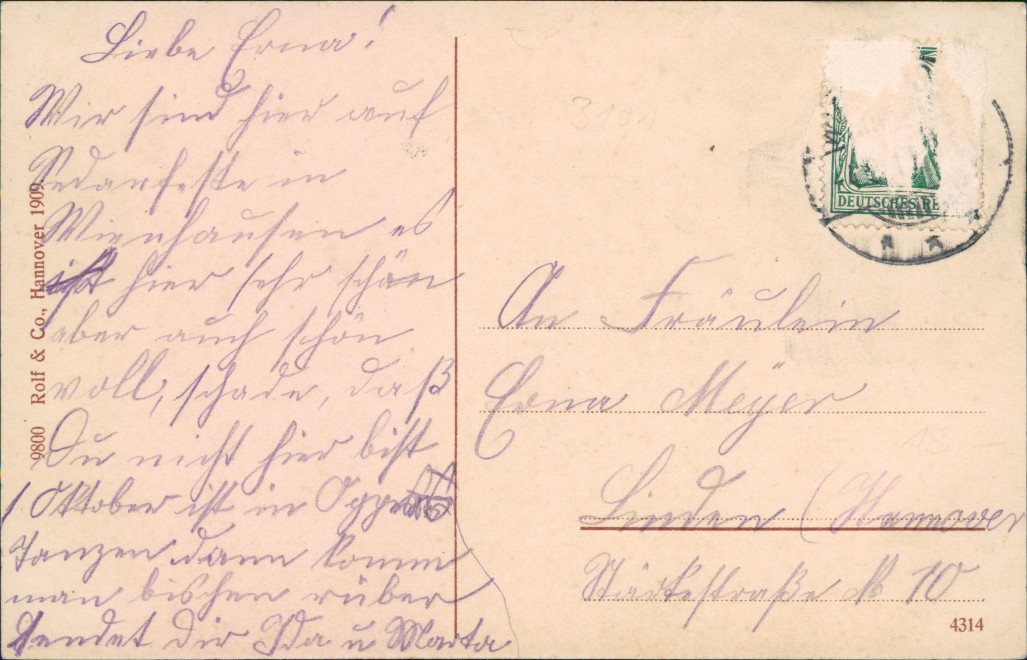 Liebe Erna!
Wir sind hier auf
Sedanfeste in
Wienhausen es
ist hier sehr schön
aber auch schön
voll, schade, daß
Du nicht hier bist
1 Oktober ist in
Tanzen dann komm
man bischen rüber
sendet dir Ida u Marta
9800 Rolf & Co., Hannover 1909.
DEUTSCHES RE
An Fräulein
Erna Meÿer
Linden (Hannover
Stärkestraße № 10
4314